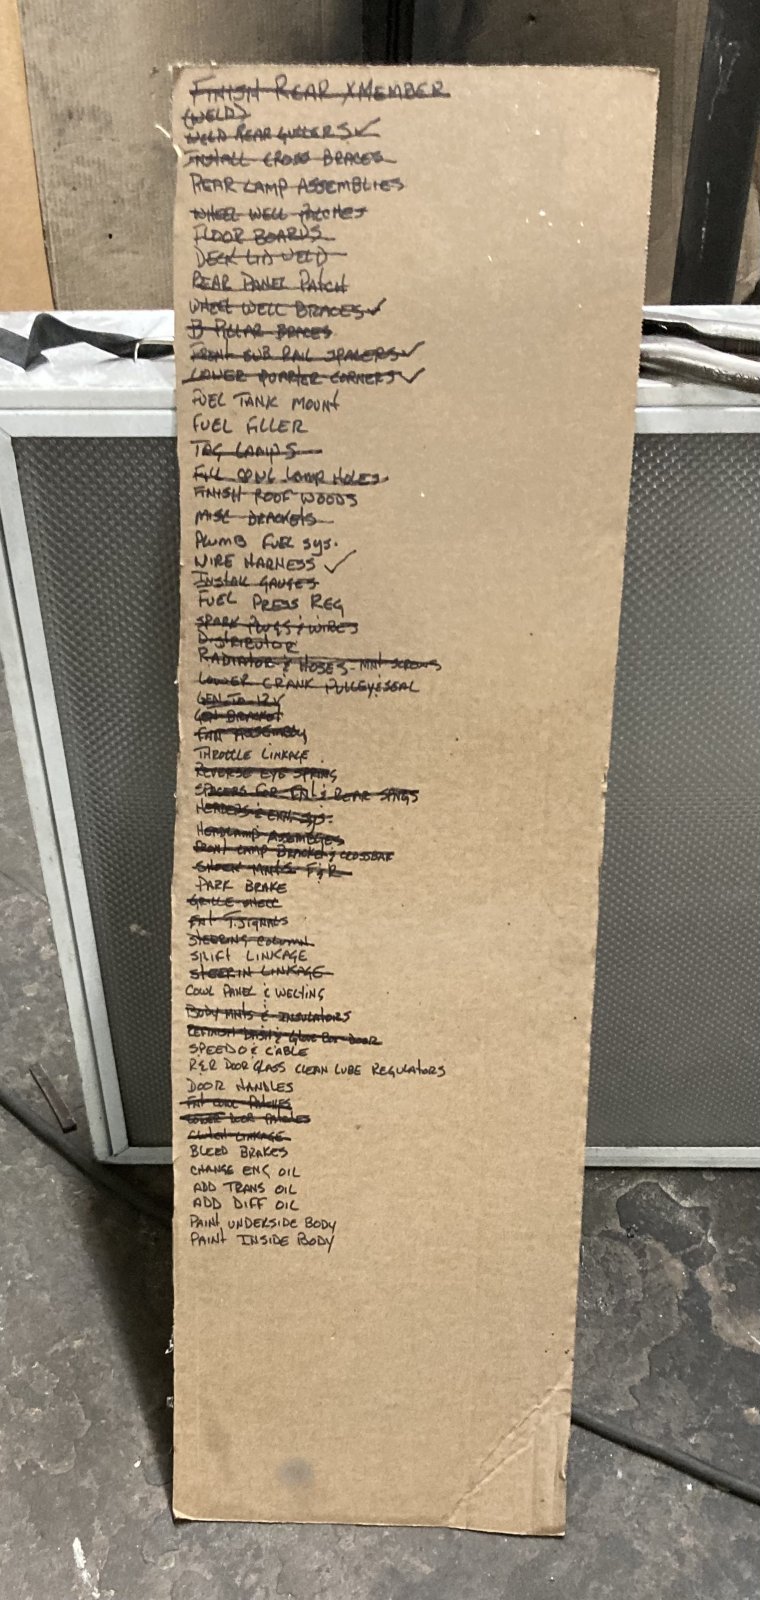 FINISH REAR XMEMBER
(WELD)
WELD REAR GUTTERS ✓
INSTALL CROSS BRACES
REAR LAMP ASSEMBLIES
WHEEL WELL PATCHES
FLOOR BOARDS
DECK LID WELD
REAR PANEL PATCH
WHEEL WELL BRACES ✓
B PILLAR BRACES
FRONT SUB RAIL SPACERS ✓
LOWER QUARTER CORNERS ✓
FUEL TANK MOUNT
FUEL FILLER
TAG LAMPS
FILL COWL LAMP HOLES
FINISH ROOF WOODS
MISC BRACKETS
PLUMB FUEL SYS.
WIRE HARNESS ✓
INSTALL GAUGES
FUEL PRESS REG
SPARK PLUGS & WIRES
DISTRIBUTOR
RADIATOR & HOSES - MNT SCREWS
LOWER CRANK PULLEY & SEAL
GEN TO 12V
GEN BRACKET
FAN ASSEMBLY
THROTTLE LINKAGE
REVERSE EYE SPRING
SPACERS FOR FNT & REAR SPNGS
HEADERS & EXH. SYS.
HEADLAMP ASSEMBLIES
FRONT LAMP BRACKET & CROSSBAR
SHOCK MNTS F & R
PARK BRAKE
GRILLE SHELL
FNT T. SIGNALS
STEERING COLUMN
SHIFT LINKAGE
STEERIN LINKAGE
COWL PANEL & WELTING
BODY MNTS & INSULATORS
REFINISH DASH & GLOVE BOX DOOR
SPEEDO & CABLE
R&R DOOR GLASS CLEAN LUBE REGULATORS
DOOR HANDLES
FNT COWL PATCHES
LOWER DOOR PATCHES
CLUTCH LINKAGE
BLEED BRAKES
CHANGE ENG OIL
ADD TRANS OIL
ADD DIFF OIL
PAINT UNDERSIDE BODY
PAINT INSIDE BODY